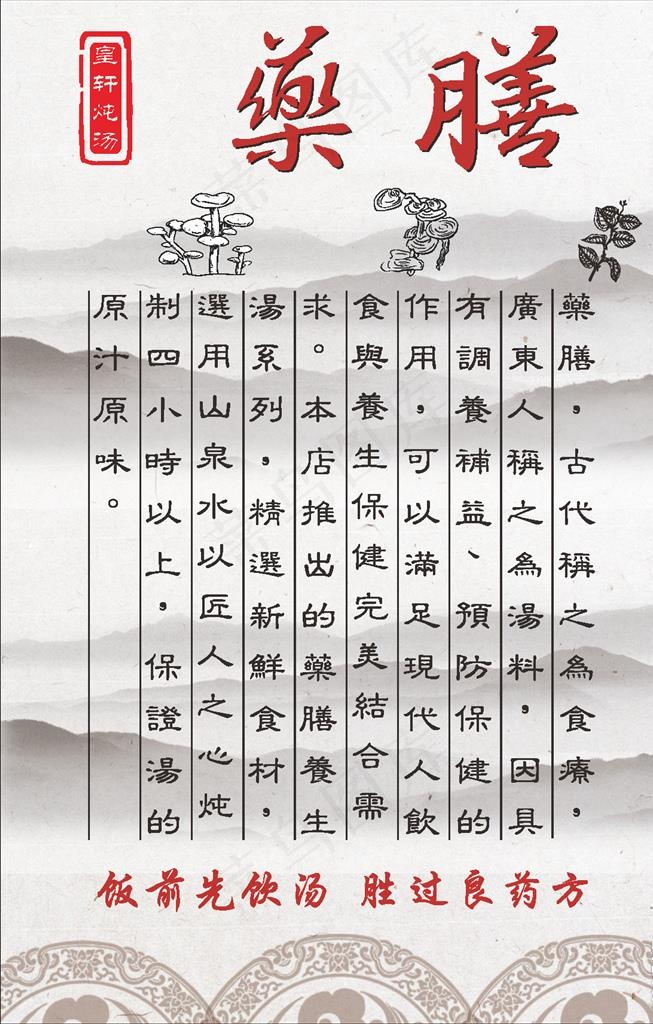 皇轩炖汤
藥膳
藥膳，古代稱之為食療，
廣東人稱之為湯料，因具
有調養補益、預防保健的
作用，可以滿足現代人飲
食與養生保健完美結合需
求。本店推出的藥膳養生
湯系列，精選新鮮食材，
選用山泉水以匠人之心炖
制四小時以上，保證湯的
原汁原味。
饭前先饮汤 胜过良药方